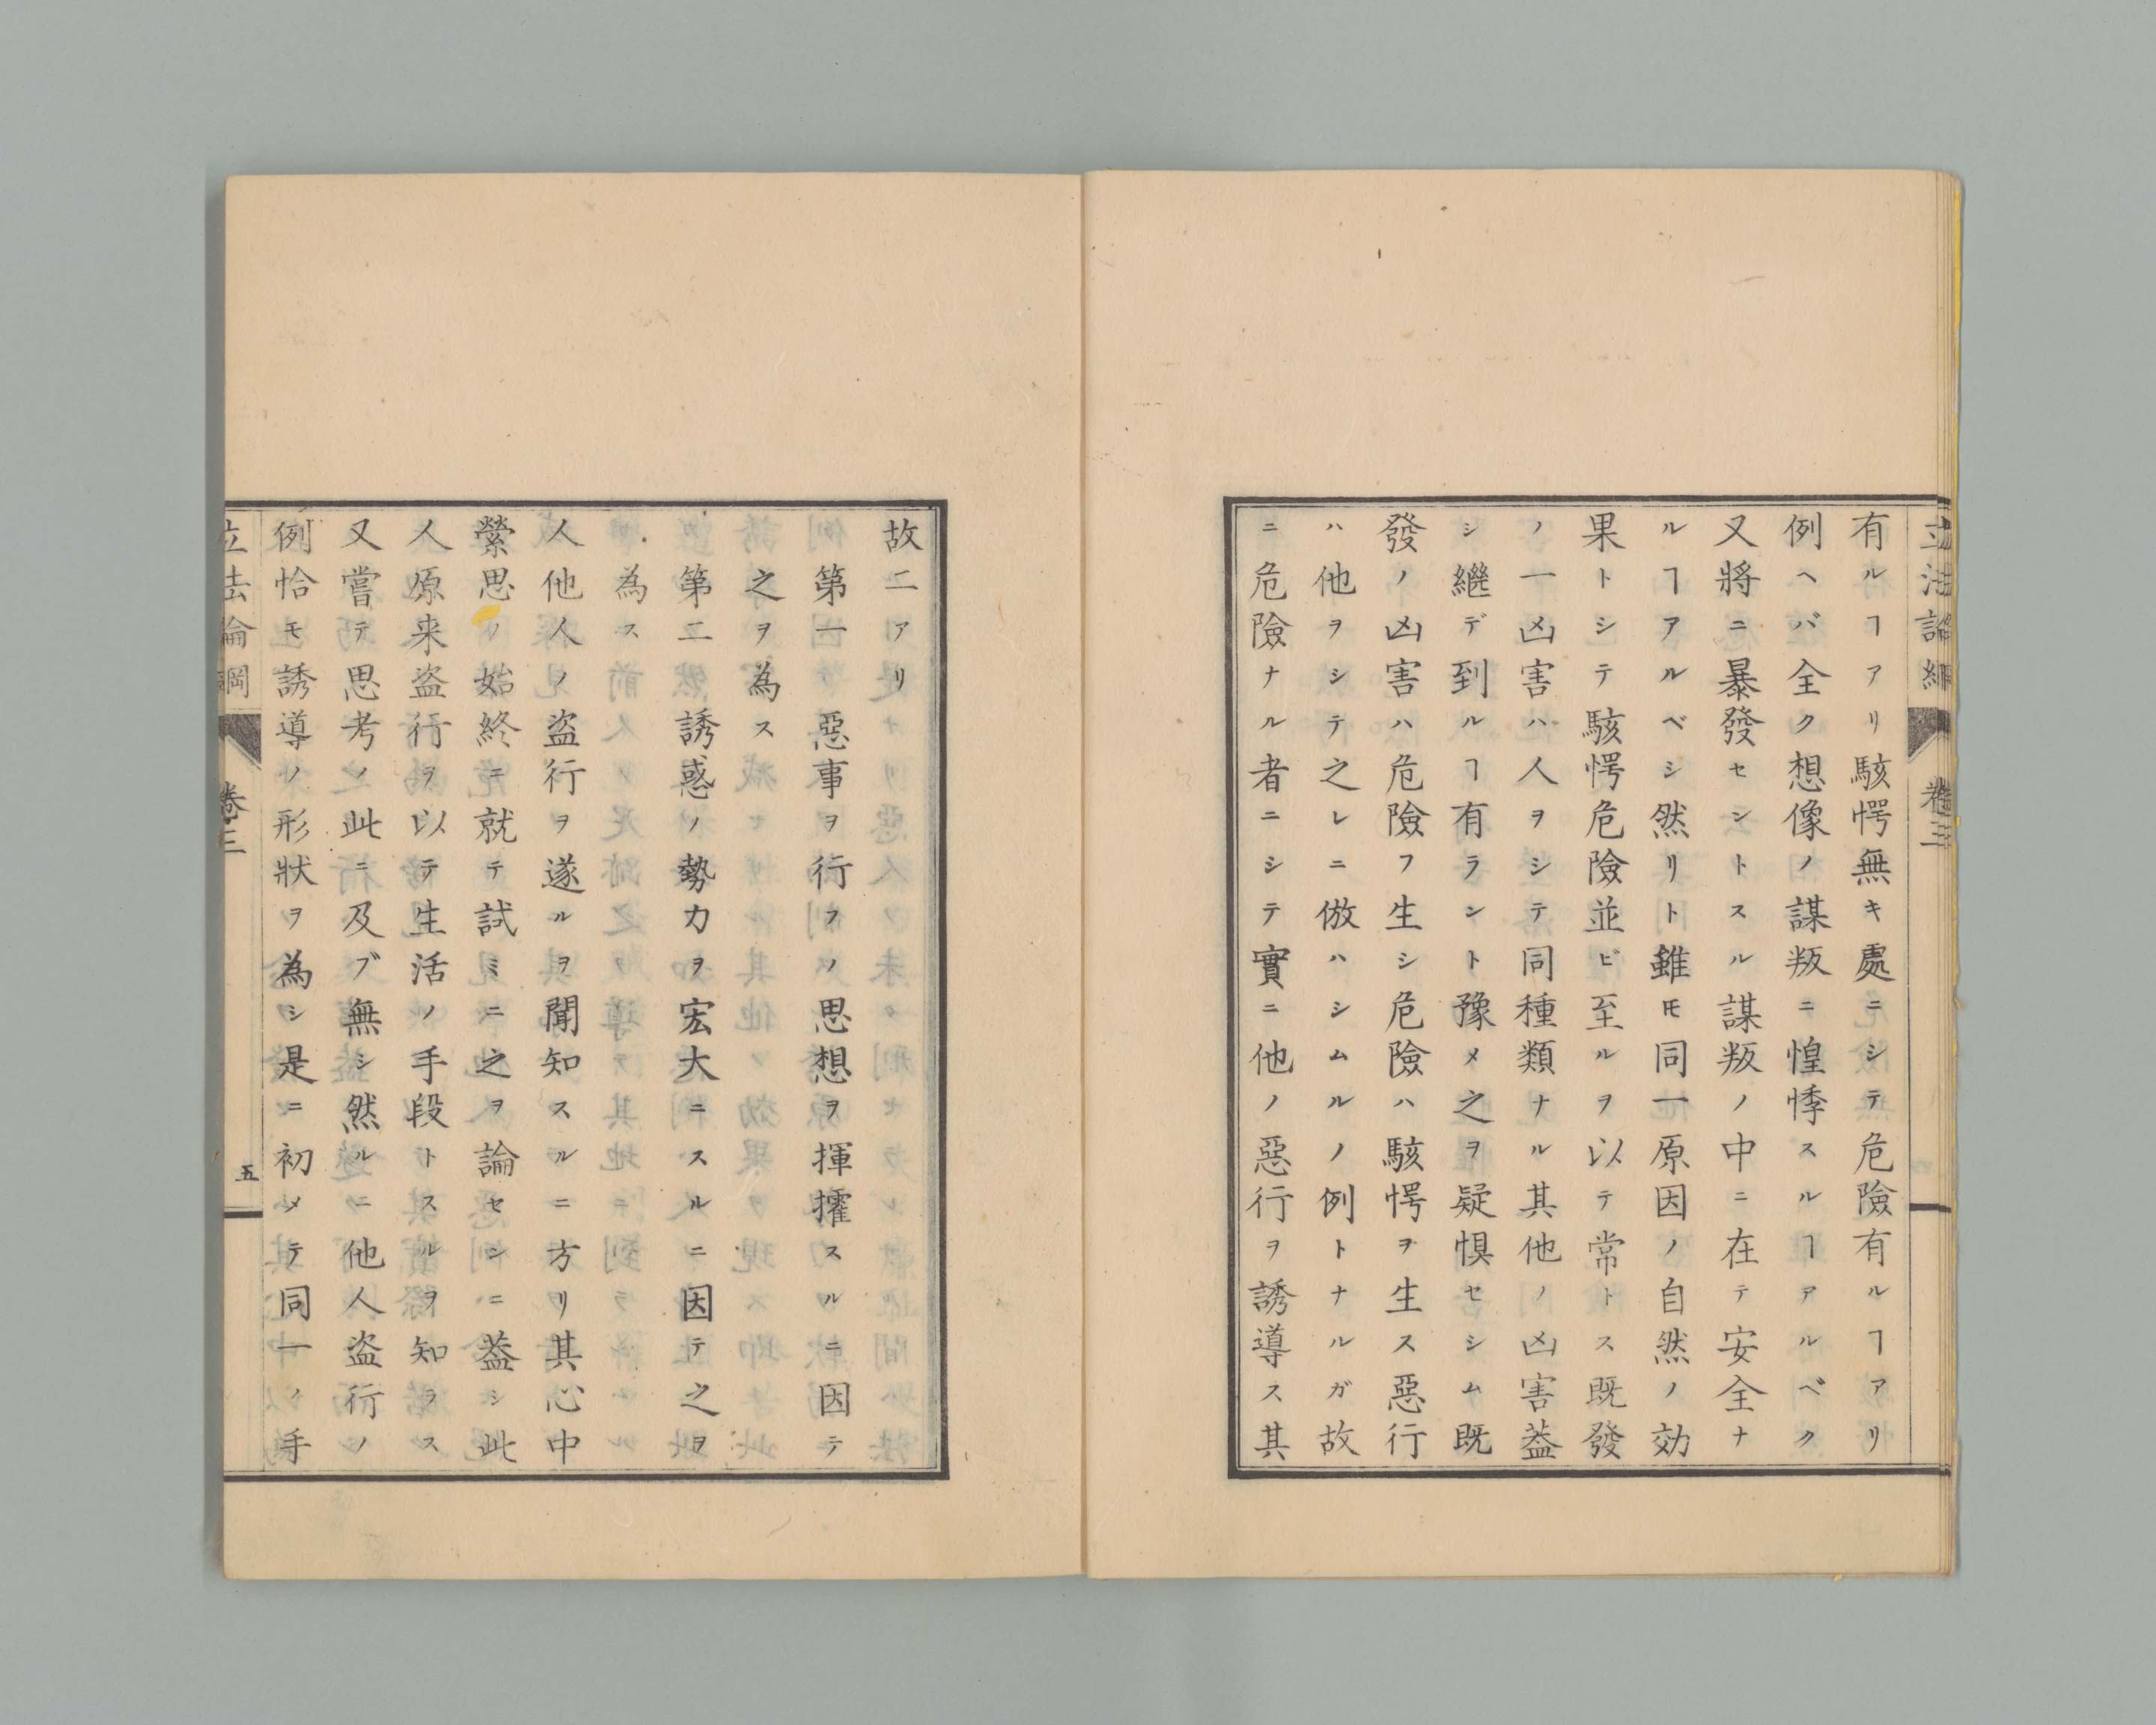 立法論綱 卷三
有ルヿアリ駭愕無キ處ニシテ危險有ルヿアリ
例ヘバ全ク想像ノ謀叛ニ惶悸スルヿアルベク
又將ニ暴發セントスル謀叛ノ中ニ在テ安全ナ
ルヿアルベシ然リト雖𪜈同一原因ノ自然ノ効
果トシテ駭愕危險並ビ至ルヲ以テ常トス既發
ノ一凶害ハ人ヲシテ同種類ナル其他ノ凶害葢
シ繼デ到ルヿ有ラント豫メ之ヲ疑惧セシム既
發ノ凶害ハ危險フ生シ危險ハ駭愕ヲ生ス惡行
ハ他ヲシテ之レニ倣ハシムルノ例トナルガ故
ニ危險ナル者ニシテ實ニ他ノ惡行ヲ誘導ス其
故二アリ
第一惡事ヲ行フノ思想ヲ揮擢スルニ因テ
之ヲ為ス
第二誘惑ノ勢力ヲ宏大ニスルニ因テ之ヲ
為ス
人他人ノ盗行ヲ遂ルヲ聞知スルニ方リ其心中
縈思ノ始終ニ就テ試ミニ之ヲ論センニ葢シ此
人原来盗行ヲ以テ生活ノ手段トスルヲ知ラス
又嘗テ思考ノ此ニ及ブ無シ然ルニ他人盗行ノ
例恰モ誘導ノ形狀ヲ為シ是ニ初メテ同一ノ手
立法論綱 卷三 五